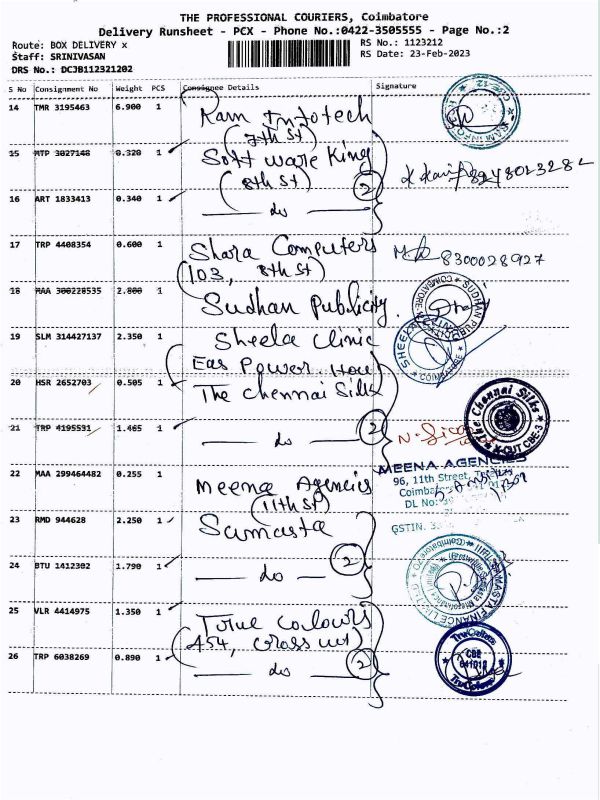 THE PROFESSIONAL COURIERS, Coimbatore
Delivery Runsheet - PCX - Phone No.:0422-3505555 - Page No.:2
Route: BOX DELIVERY x RS No.: 1123212
Staff: SRINIVASAN RS Date: 23-Feb-2023
DRS No.: DCJB112321202
S No Consignment No Weight PCS Consignee Details Signature
14 TMR 3195463 6.900 1 Ram Infotech
(7th St)
15 MTP 3027148 0.320 1 Soft ware King
(8th St) 8248023282
16 ART 1833413 0.340 1 do 2
17 TRP 4408354 0.600 1 Shara Computers 8300028927
(103, 8th St)
18 MAA 300228535 2.800 1 Sudhan Publicity. SUDHAN PUBLICITY COIMBATORE
19 SLM 314427137 2.350 1 Sheela Clinic SHEELA COIMBATORE
(Eas Power Hou
20 HSR 2652703 0.505 1 The Chennai Silks The Chennai Silks
21 TRP 4195531 1.465 1 do 2 X-CUT CBE-3
22 MAA 299464482 0.255 1 Meena Agencies MEENA AGENCIES
(11th St) 96, 11th Street,
DL No:
23 RMD 944628 2.250 1 Samasta GSTIN.
24 BTU 1412302 1.790 1 do 2 SAMASTA FINANCE LIMITED
25 VLR 4414975 1.350 1 True Colours
(454, Cross cut) TruColors
26 TRP 6038269 0.890 1 do 2 CBE 641012
TruColors